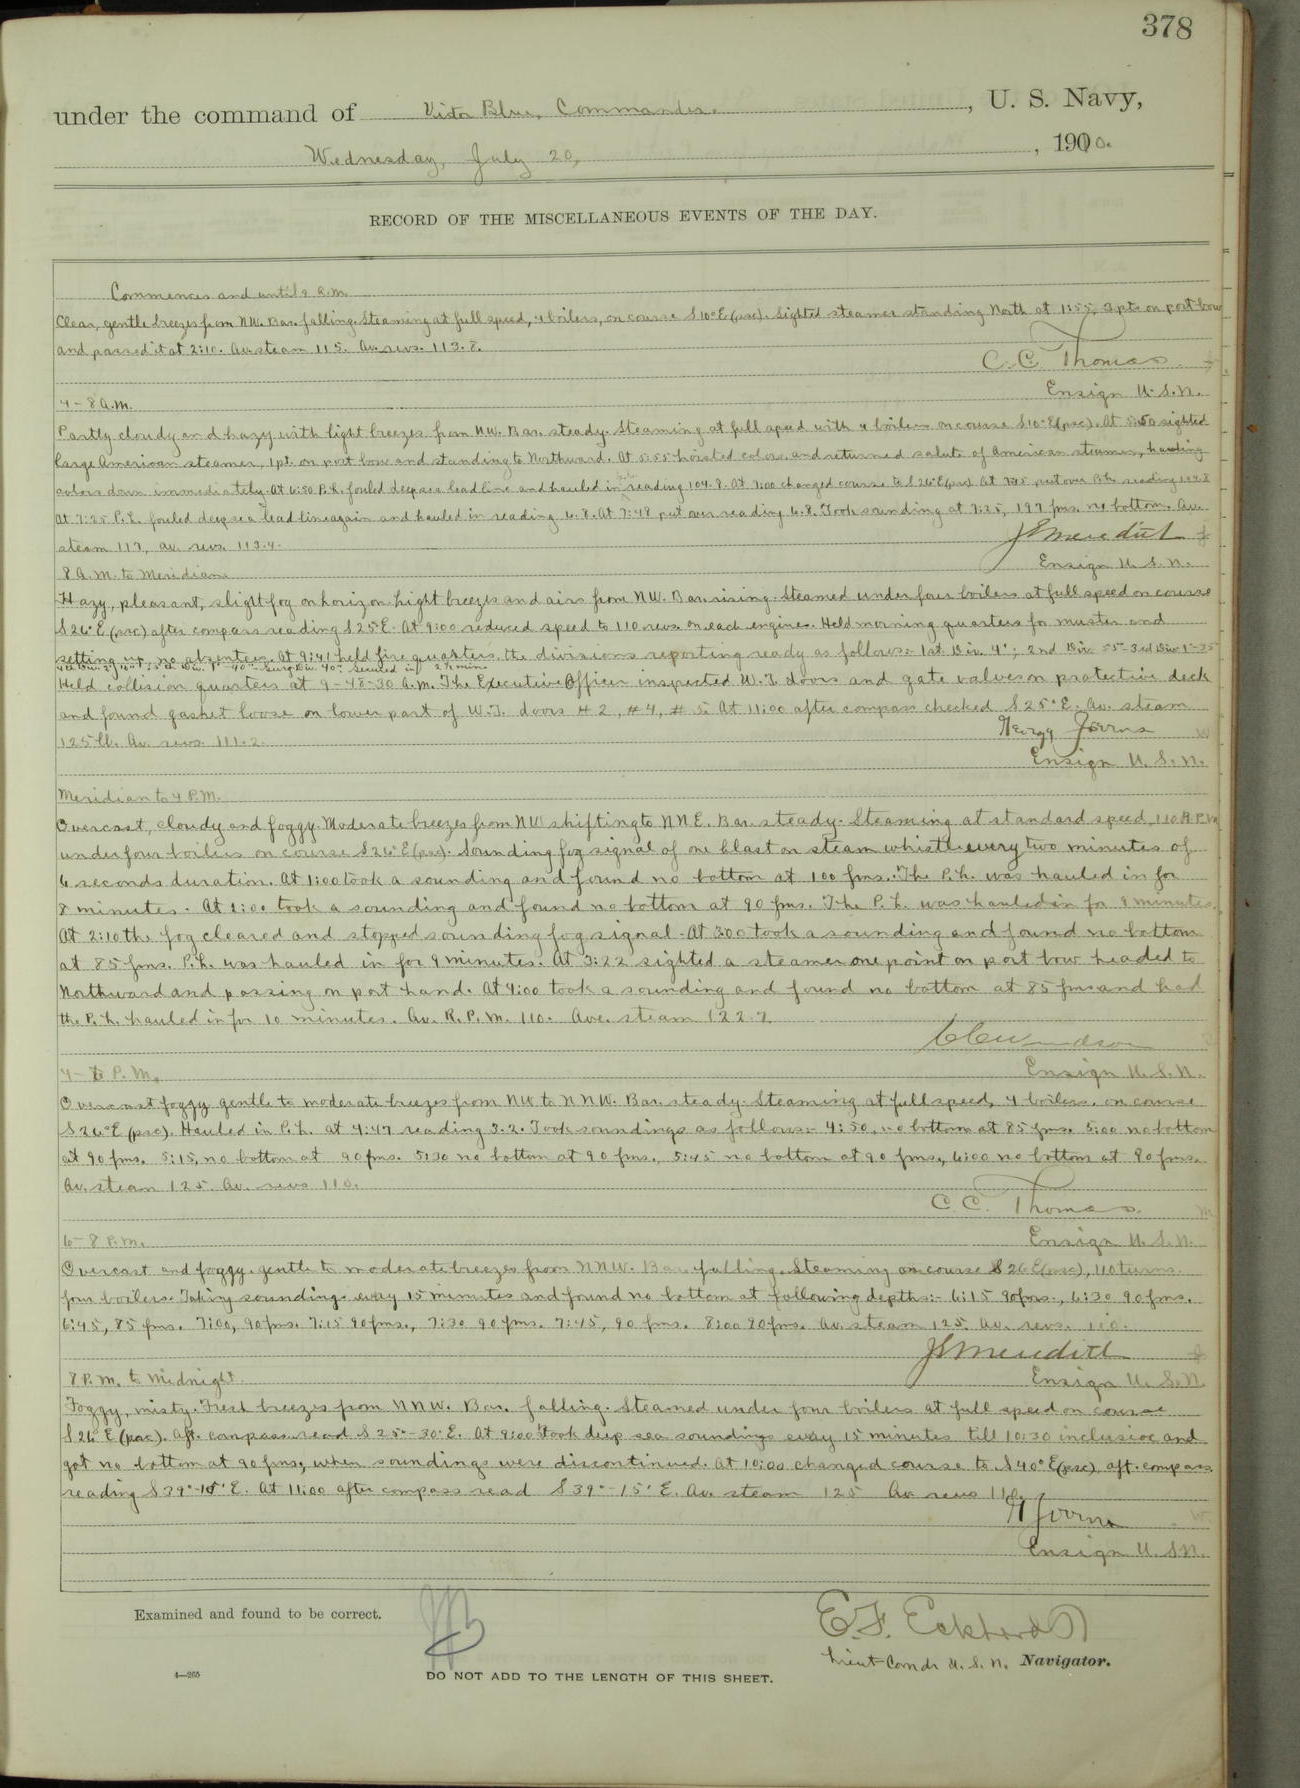 378
under the command of Victor Blue, Commander. , U. S. Navy,
Wednesday, July 20, , 1910.
RECORD OF THE MISCELLANEOUS EVENTS OF THE DAY.
Commences and until 4 A.M.
Clear, gentle breezes from NW. Bar. falling. Steaming at full speed, 4 boilers, on course S 10° E (psc). Sighted steamer standing North at 1:55, 3 pts on port bow
and passed it at 2:10. Av. steam 115. Av. revs. 113.8.
C. C. Thomas
Ensign U. S. N.
4 - 8 A.M.
Partly cloudy and hazy with light breezes from NW. Bar. steady. Steaming at full speed with 4 boilers on course S 10° E (psc). At 5:50 sighted
large American steamer, 1 pt. on port bow and standing to Northward. At 5:55 hoisted colors and returned salute of American steamer, hauling
colors down immediately. At 6:50 P.L. fouled deep sea lead line and hauled in, reading 104.8. At 7:00 changed course to S 26° E (psc). At 7:15 put over P.L. reading 104.8
At 7:25 P.L. fouled deep sea lead line again and hauled in reading 6.8. At 7:48 put over reading 6.8. Took sounding at 7:25, 197 fms. no bottom. Av.
steam 117, av. revs. 113.4.
J S Meredith
Ensign U. S. N.
8 A.M. to Meridian
Hazy, pleasant, slight fog on horizon. Light breezes and airs from NW. Bar. rising. Steamed under four boilers at full speed on course
S 26° E (psc) after compass reading S 25 E. At 9:00 reduced speed to 110 revs. on each engine. Held morning quarters for muster and
setting up, no absentees. At 9:41 held fire quarters, the divisions reporting ready as follows:- 1st Div. 4'; 2nd Div. 55" 3rd Div. 1'-35"
Secured in 2½ mins
Held collision quarters at 9-48-30 A.M. The Executive Officer inspected W.T. doors and gate valves on protective deck
and found gasket loose on lower part of W.T. doors # 2, # 4, # 5. At 11:00 after compass checked S 25° E. Av. steam
125 lb. Av. revs. 111.2.
Ensign U. S. N.
Meridian to 4 P.M.
Overcast, cloudy and foggy. Moderate breezes from NW shifting to NNE. Bar. steady. Steaming at standard speed, 110 R.P.M.
under four boilers on course S 26° E (psc). Sounding fog signal of one blast on steam whistle every two minutes of
6 seconds duration. At 1:00 took a sounding and found no bottom at 100 fms. The P.L. was hauled in for
8 minutes. At 2:00 took a sounding and found no bottom at 90 fms. The P.L. was hauled in for 9 minutes.
At 2:10 the fog cleared and stopped sounding fog signal. At 3:00 took a sounding and found no bottom
at 85 fms. P.L. was hauled in for 9 minutes. At 3:22 sighted a steamer one point on port bow headed to
Northward and passing on port hand. At 4:00 took a sounding and found no bottom at 85 fms and had
the P.L. hauled in for 10 minutes. Av. R.P.M. 110. Ave. steam 122.7.
Ensign U. S. N.
4 - 6 P. M.
Overcast foggy gentle to moderate breezes from NW to NNW. Bar. steady. Steaming at full speed, 4 boilers, on course
S 26° E (psc). Hauled in P.L. at 4:47 reading 3.2. Took soundings as follows:- 4:50, no bottom at 85 fms. 5:00 no bottom
at 90 fms. 5:15, no bottom at 90 fms. 5:30 no bottom at 90 fms., 5:45 no bottom at 90 fms., 6:00 no bottom at 90 fms.
Av. steam 125. Av. revs 110.
C. C. Thomas
Ensign U. S. N.
6 - 8 P.M.
Overcast and foggy, gentle to moderate breezes from NNW. Bar. falling. Steaming on course S 26 E (psc), 110 turns
four boilers. Taking soundings every 15 minutes and found no bottom at following depths:- 6:15 90 fms., 6:30 90 fms.
6:45, 85 fms. 7:00, 90 fms. 7:15 90 fms., 7:30 90 fms. 7:45, 90 fms. 8:00 90 fms. Av. steam 125. Av. revs. 110.
J S Meredith
Ensign U. S. N.
8 P.M. to Midnight
Foggy, misty. Fresh breezes from NNW. Bar. falling. Steamed under four boilers at full speed on course
S 26° E (psc). Aft. compass read S 25°-30' E. At 9:00 took deep sea soundings every 15 minutes till 10:30 inclusive and
got no bottom at 90 fms, when soundings were discontinued. At 10:00 changed course to S 40° E (psc), aft. compass
reading S 39°-15' E. At 11:00 after compass read S 39°-15' E. Av. steam 125 Av. revs 110.
Ensign U. S. N.
Examined and found to be correct.
E. F. Eckhardt
Lieut-Comdr U. S. N. Navigator.
4—265
DO NOT ADD TO THE LENGTH OF THIS SHEET.